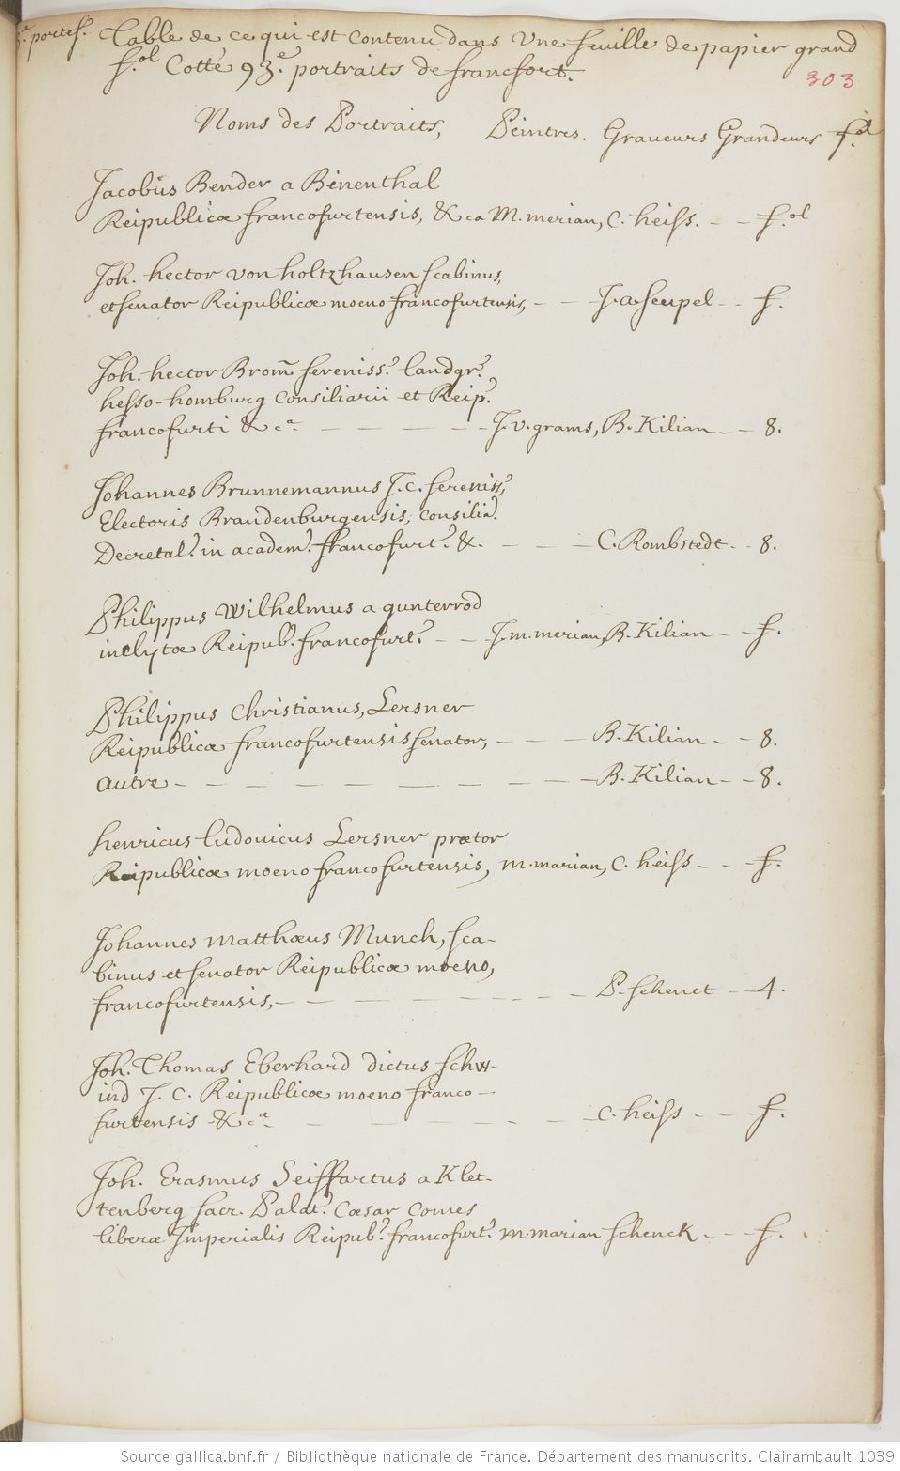 e. portef. Table de ce qui est contenu dans Une feuille de papier grand
f.ol Cotté 93.e portraits de francfort.
303
Noms des Portraits, Peintres. Graveurs Grandeurs f.ol
Jacobus Bender a Bienenthal
Reipublicæ francofurtensis, &ca M. merian, C. heiss. - - f.ol
Joh. hector von holtzhausen scabinus,
et senator Reipublicæ moeno francofurtensis, - - J. a seupel - - f.
Joh. hector Brom̄ sereniss.? landgr.?
hesso-homburg Consiliarii et Reip.?
francofurti &ca - - - - - J. v. grams, B. Kilian - - 8.
Johannes Brunnemannus J. C. sereniss.?
Electoris Brandenburgensis, Consilia.?
Decretal.? in academ.? ffrancofurt.? &. - - - C. Rombstedt. - 8.
Philippus Wilhelmus a gunterrod
inclytæ Reipub. francofurt.? - - J. m. merian, B. Kilian - - f.
Philippus Christianus, Lersner
Reipublicæ francofurtensis senator, - - - B. Kilian - - 8.
autre - - - - - - - - - - B. Kilian - - 8.
henricus ludovicus Lersner prætor
Reipublicæ moeno francofurtensis, m. marian, C. heiss - - f.
Johannes matthæus Munch, sca-
binus et senator Reipublicæ moeno,
francofurtensis, - - - - - - - - - P. schenct - - 4.
Joh. Thomas Eberhard dictus schw-
ind J. C. Reipublicæ moeno franco-
furtensis &ca - - - - - - C. heiss - - - f.
Joh. Erasmus Seiffartus a Klet-
tenberg sacr. Palat.? Cæsar Comes
liberæ Imperialis Reipub.? francofurt.? m. marian schenck. - - f.
Source gallica.bnf.fr / Bibliothèque nationale de France. Département des manuscrits. Clairambault 1039